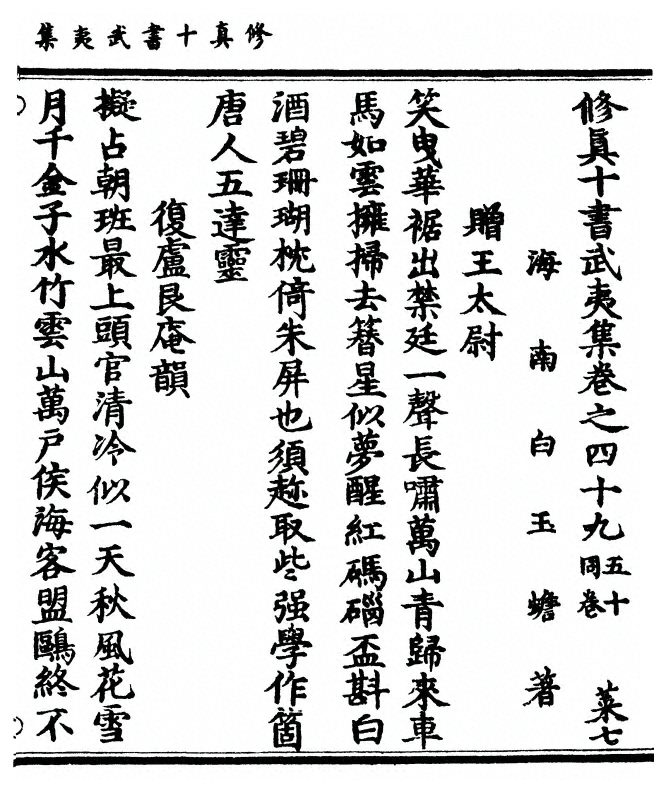 修真十書武夷集
修真十書武夷集卷之四十九五十同卷 菜七
海南白玉蟾著
贈王太尉
笑曳華裾出禁廷一聲長嘯萬山青歸來車
馬如雲擁掃去簪星似夢醒紅碼碯盃斟白
酒碧珊瑚枕倚朱屏也須趂取些强學作箇
唐人五達靈
復盧艮庵韻
擬占朝班最上頭官清冷似一天秋風花雪
月千金子水竹雲山萬戶侯海客盟鷗終不